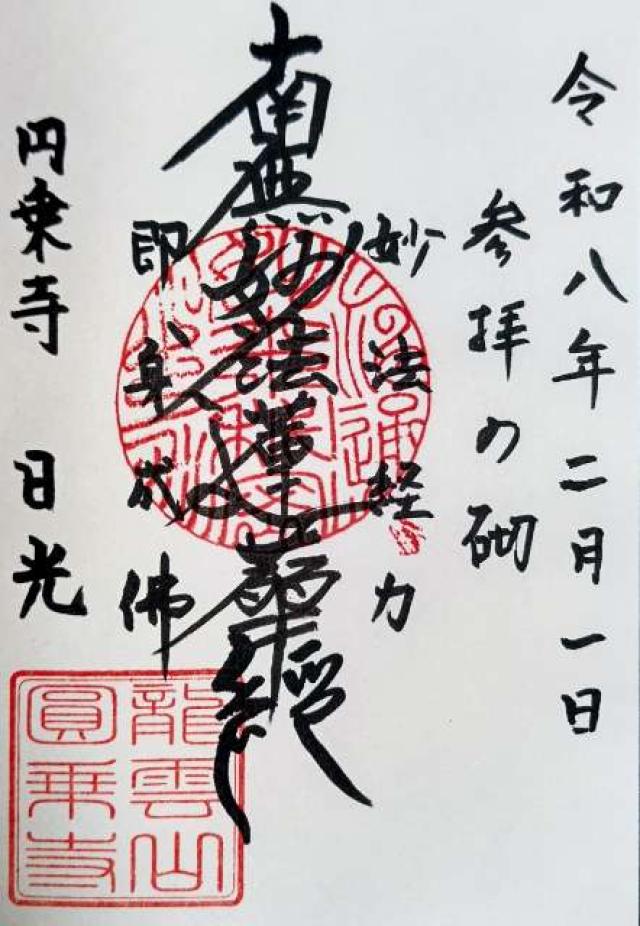 令和八年二月一日
参拝の砌
妙法経力
南無妙法蓮華經
即身成佛
円乗寺 日光
龍雲山
圓乗寺